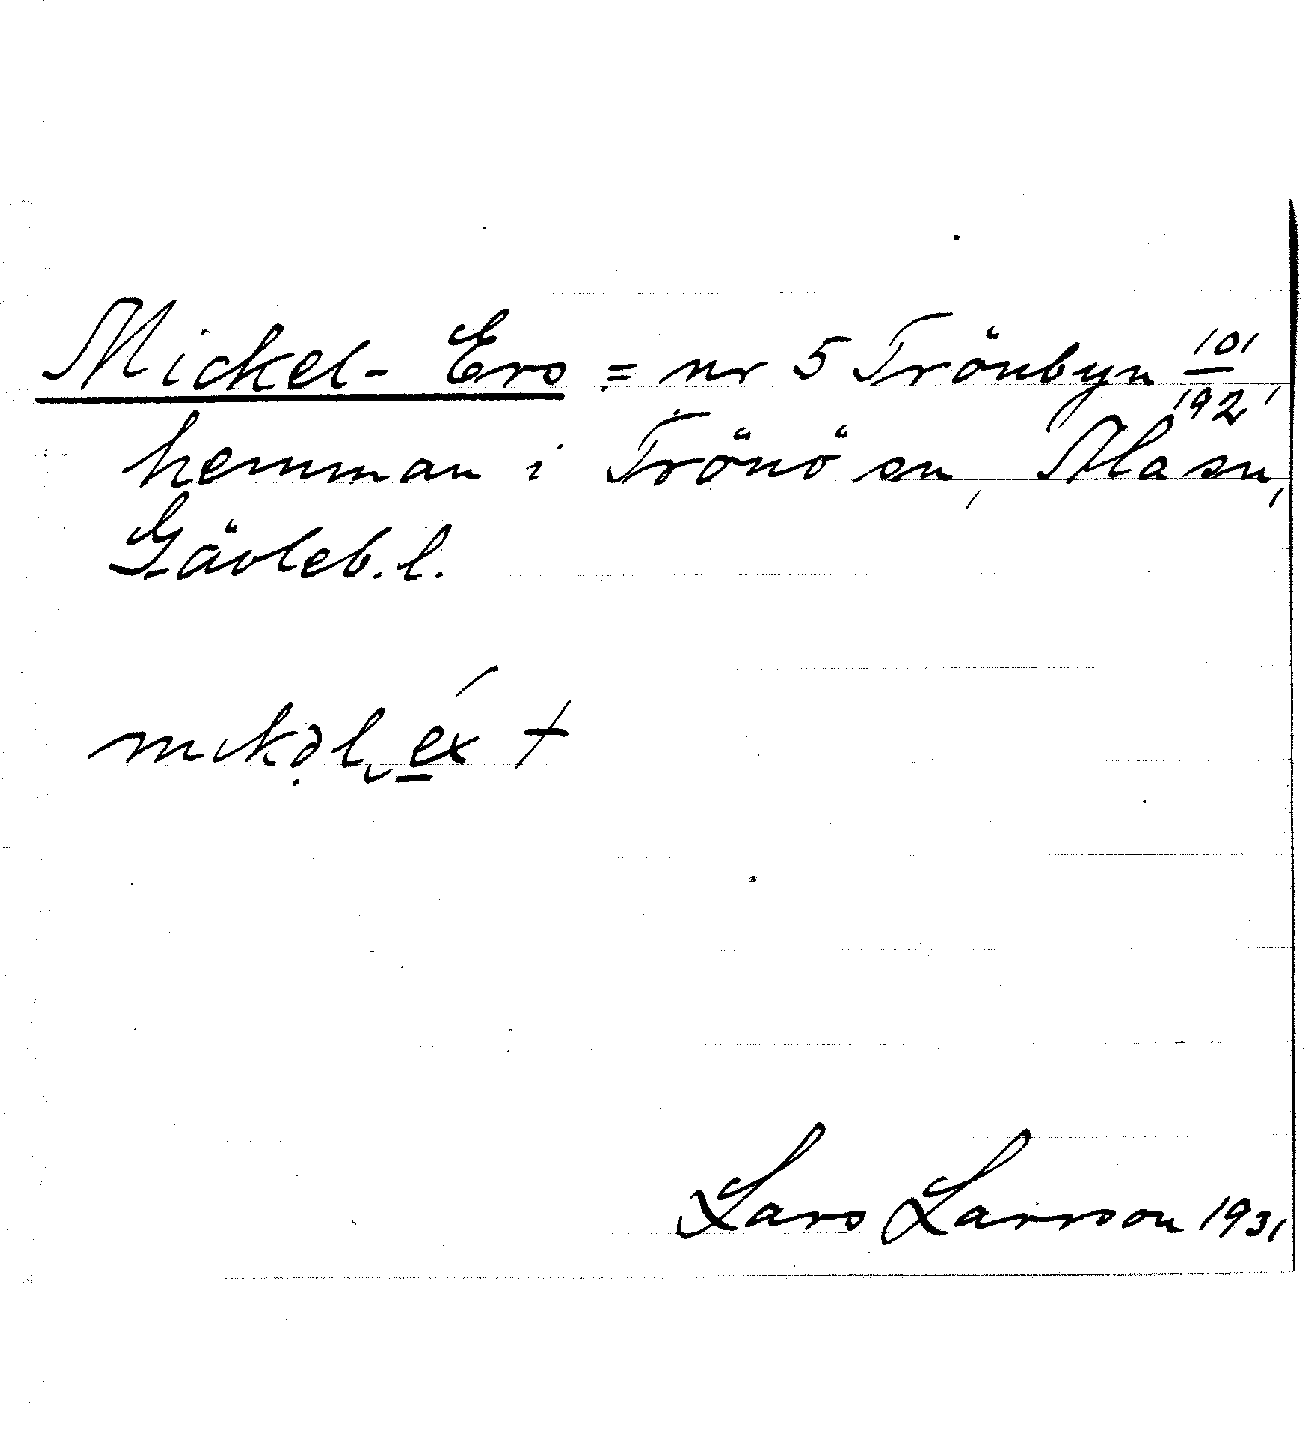 Mickel-Ers = nr 5 Trönbyn 101/192
hemman i Trönö sn, Ala sn,
Gävleb. l.
Lars Larsson 1931